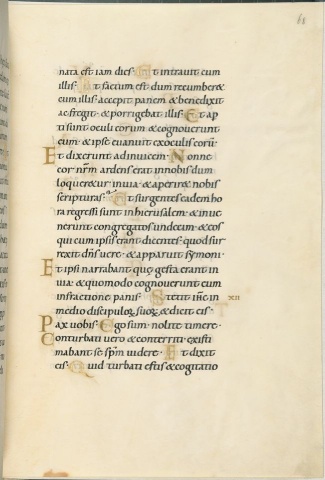 68
nata est iam dies. Et intrauit cum
illis. Et factum est dum recumberet
cum illis accepit panem & benedixit
ac fregit. & porrigebat illis. Et ap
ti sunt oculi eorum & cognouerunt
eum. & ipse euanuit ex oculis eorū.
Et dixerunt adinuicem. Nonne
cor nr̄m ardens erat in nobis dum
loqueretur in uia. & aperiret nobis
scripturas. Et surgentes eadem ho
ra regressi sunt in hierusalem. & inue
nerunt congregatos undecim. & eos
qui cum ipsis erant dicentes. quod sur
rexit dn̄s uere. & apparuit symoni.
Et ipsi narrabant que gesta erant in
uia. & quomodo cognouerunt eum
in fractione panis. Stetit ih̄c in XII
medio discipuloꝝ suoꝝ & dicit eis.
Pax uobis. Ego sum. nolite timere.
Conturbati uero & conterriti existi
mabant se sp̄m uidere. Et dixit
eis. Quid turbati estis & cogitatio